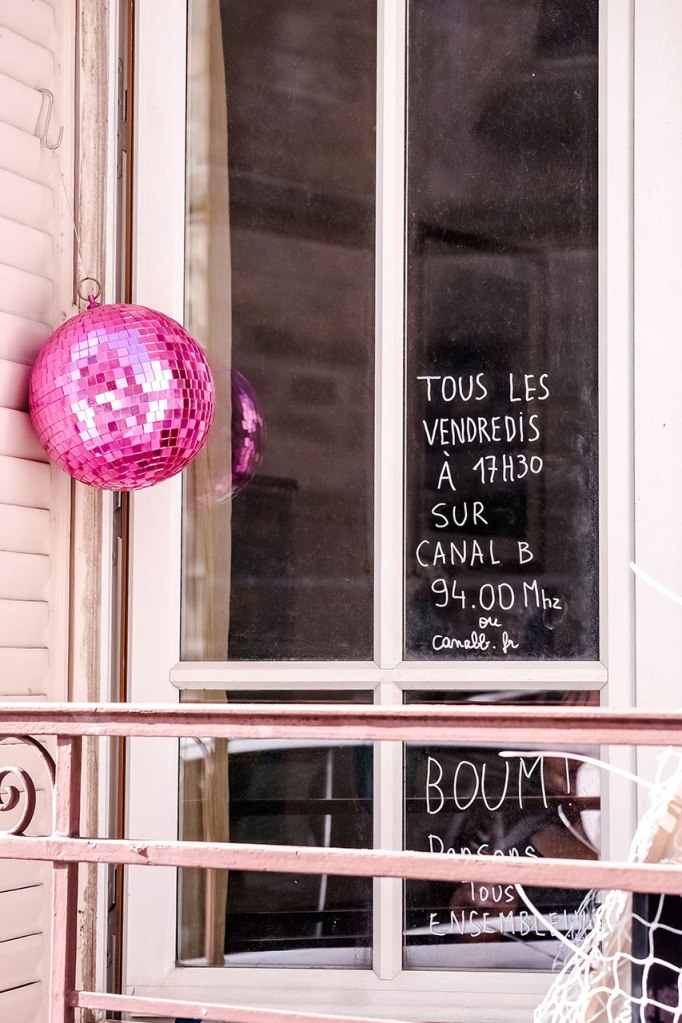 TOUS LES
VENDREDIS
À 17H30
SUR
CANAL B
94.00 Mhz
ou
canalb.fr
BOUM!
Dansons
TOUS
ENSEMBLE!!!